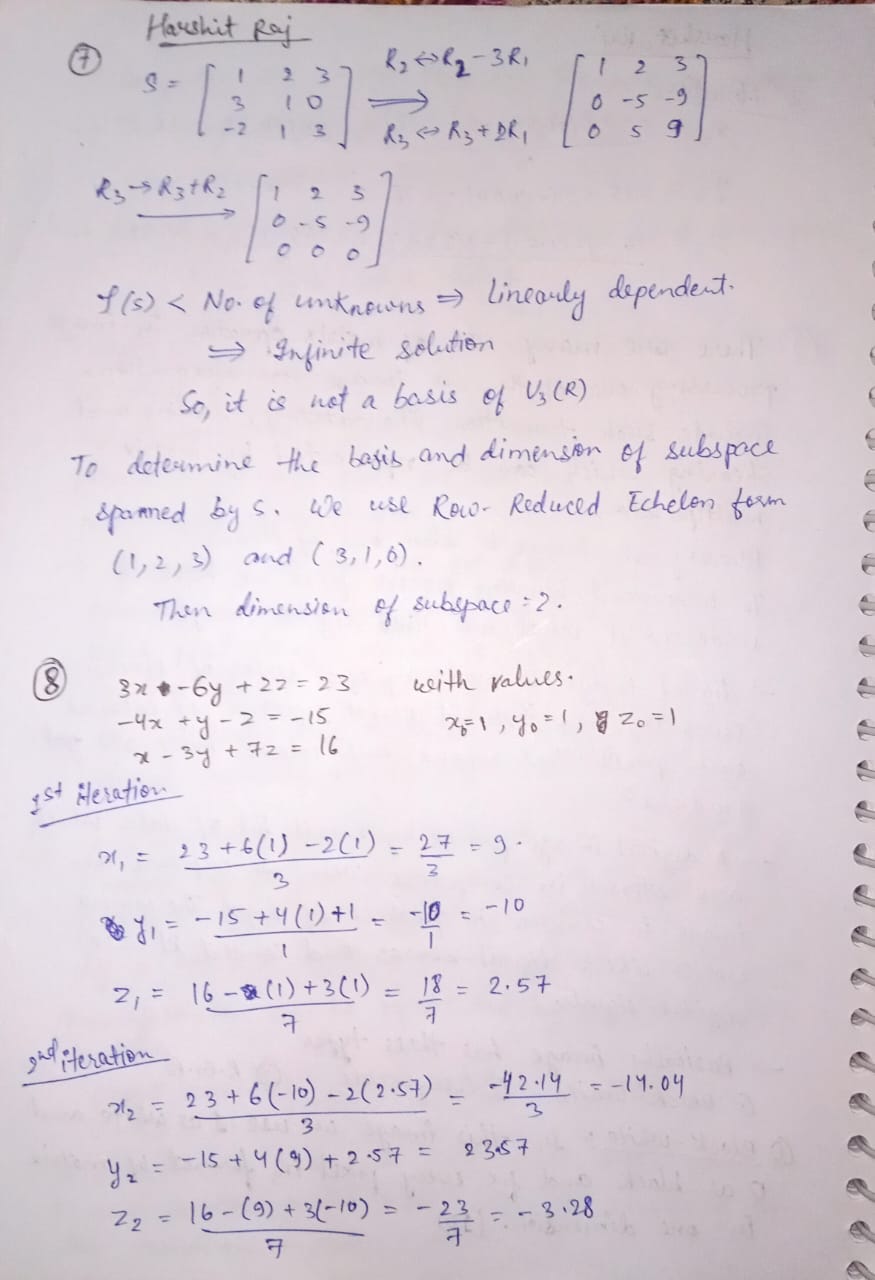 Harshit Raj
⑦
S = [ 1 2 3 ; 3 1 0 ; -2 1 3 ] R₂ ↔ R₂ - 3R₁ ⟹ R₃ ↔ R₃ + 2R₁ [ 1 2 3 ; 0 -5 -9 ; 0 5 9 ]
R₃ → R₃ + R₂ [ 1 2 3 ; 0 -5 -9 ; 0 0 0 ]
f(s) < No. of unknowns ⇒ linearly dependent.
⇒ Infinite solution
So, it is not a basis of V₃(R)
To determine the basis and dimension of subspace
spanned by s. We use Row-Reduced Echelon form
(1,2,3) and (3,1,0).
Then dimension of subspace = 2.
⑧ 3x - 6y + 2z = 23 with values.
-4x + y - z = -15 x₀=1, y₀=1, z₀=1
x - 3y + 7z = 16
1st iteration
x₁ = (23 + 6(1) - 2(1))/3 = 27/3 = 9.
y₁ = (-15 + 4(1) + 1)/1 = -10/1 = -10
z₁ = (16 - (1) + 3(1))/7 = 18/7 = 2.57
2nd iteration
x₂ = (23 + 6(-10) - 2(2.57))/3 = -42.14/3 = -14.04
y₂ = -15 + 4(9) + 2.57 = 23.57
z₂ = (16 - (9) + 3(-10))/7 = -23/7 = -3.28